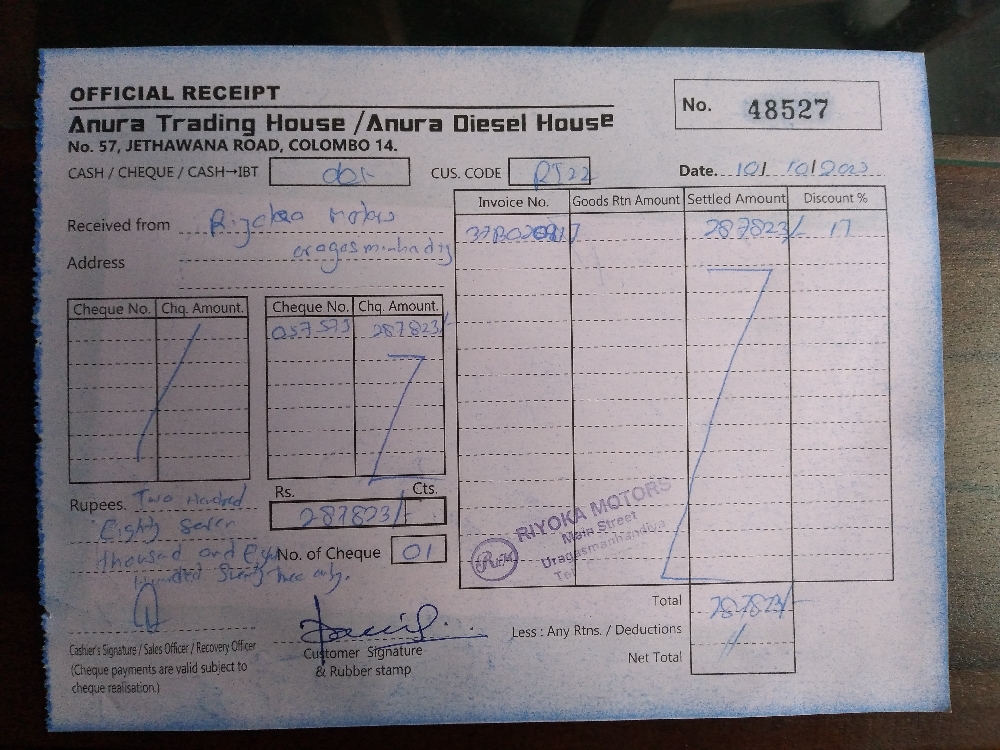 OFFICIAL RECEIPT
No. 48527
Anura Trading House /Anura Diesel House
No. 57, JETHAWANA ROAD, COLOMBO 14.
CASH / CHEQUE / CASH→IBT
CUS. CODE RJ22
Date. 10/ 10/2023
Received from
Address
Invoice No. Goods Rtn Amount Settled Amount Discount %
287823/- 17
Cheque No. Chq. Amount. Cheque No. Chq. Amount.
057573 287823/-
Rupees. Two Hundred
Eighty Seven
thousand and Eight
Hundred Twenty three only.
Rs. Cts.
287823/-
No. of Cheque 01
RIYOKA MOTORS
Main Street
Uragasmanhandiya
Tel
RM
Total 287823/-
Less : Any Rtns. / Deductions
Net Total
Cashier's Signature / Sales Officer / Recovery Officer
(Cheque payments are valid subject to
cheque realisation.)
Customer Signature
& Rubber stamp